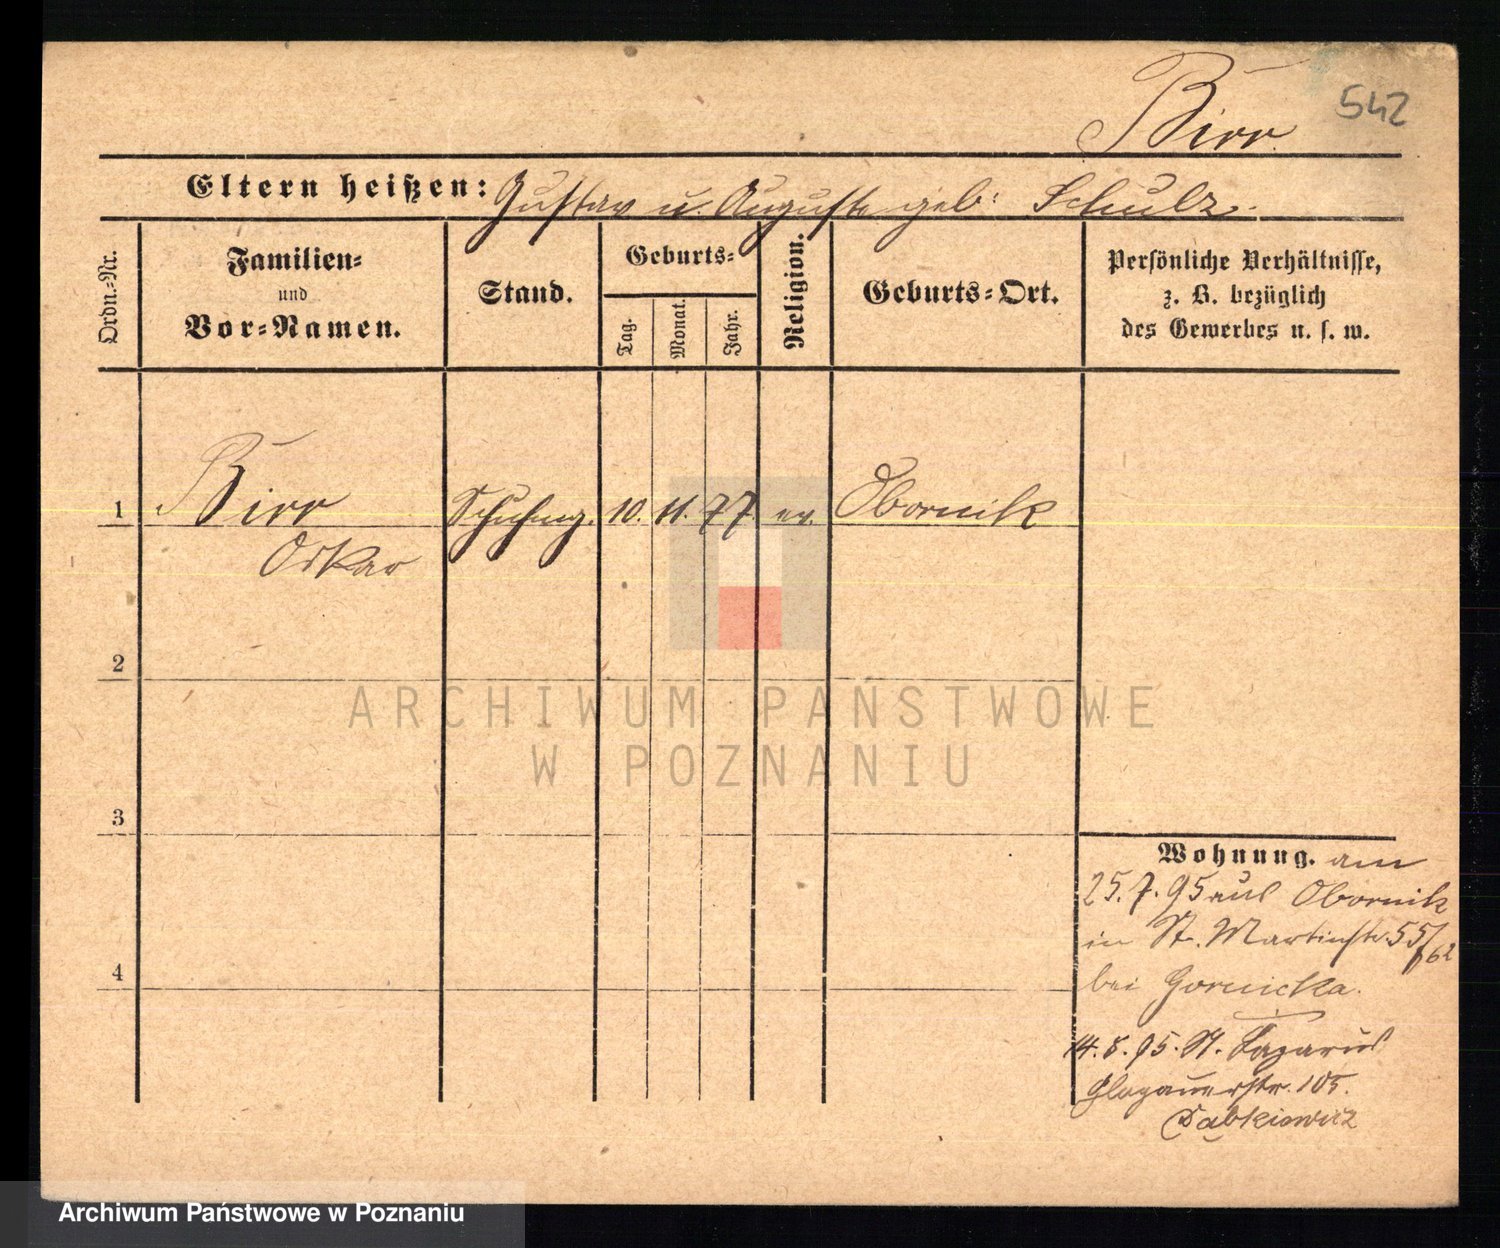 Birr
542
Eltern heißen: Gustav u. Auguste geb: Schulz.
Ordn.-Nr.
Familien-
und
Vor-Namen.
Stand.
Geburts-
Tag.
Monat.
Jahr.
Religion.
Geburts-Ort.
Persönliche Verhältnisse,
z. B. bezüglich
des Gewerbes u. s. w.
1 Birr Schuhmg. 10. 11. 77. ev. Obornik
Oskar
2
3
4
Wohnung. am
25.7.95 aus Obornik
in St. Martinstr. 55/62
bei Gornicka.
14.8.95. St. Lazarus
Glogauerstr. 105.
Dabkiewicz
ARCHIWUM PAŃSTWOWE
W POZNANIU
Archiwum Państwowe w Poznaniu